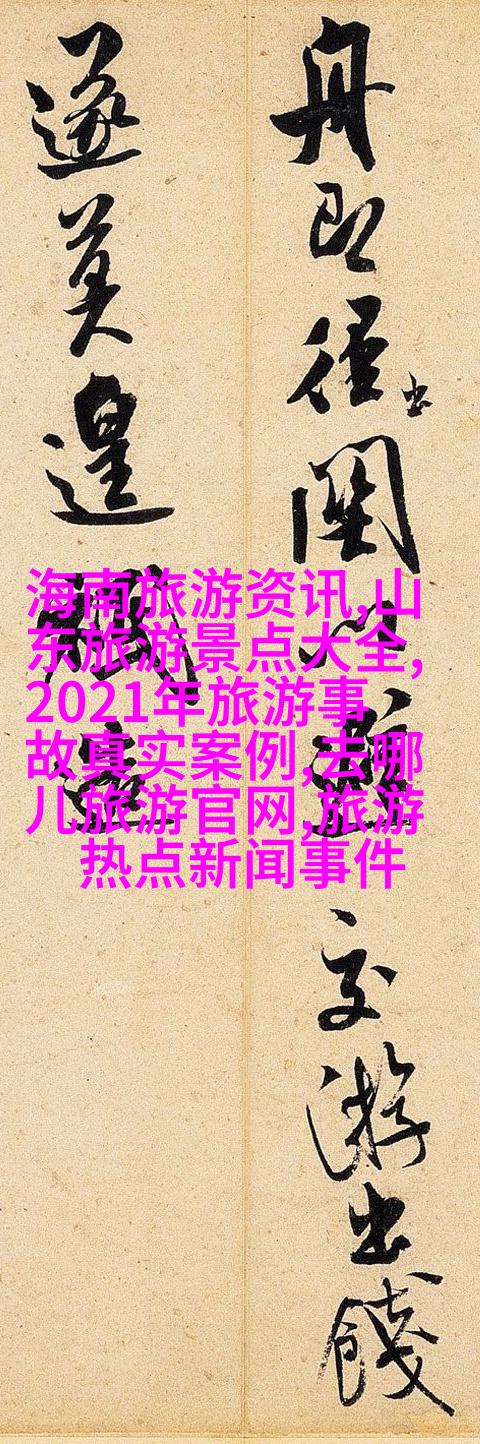 舟即径出関以避交游出餞
遂莫遑
海南旅游资讯,山
东旅游景点大全,
2021年旅游事
故真实案例,去哪
儿旅游官网,旅游
热点新闻事件